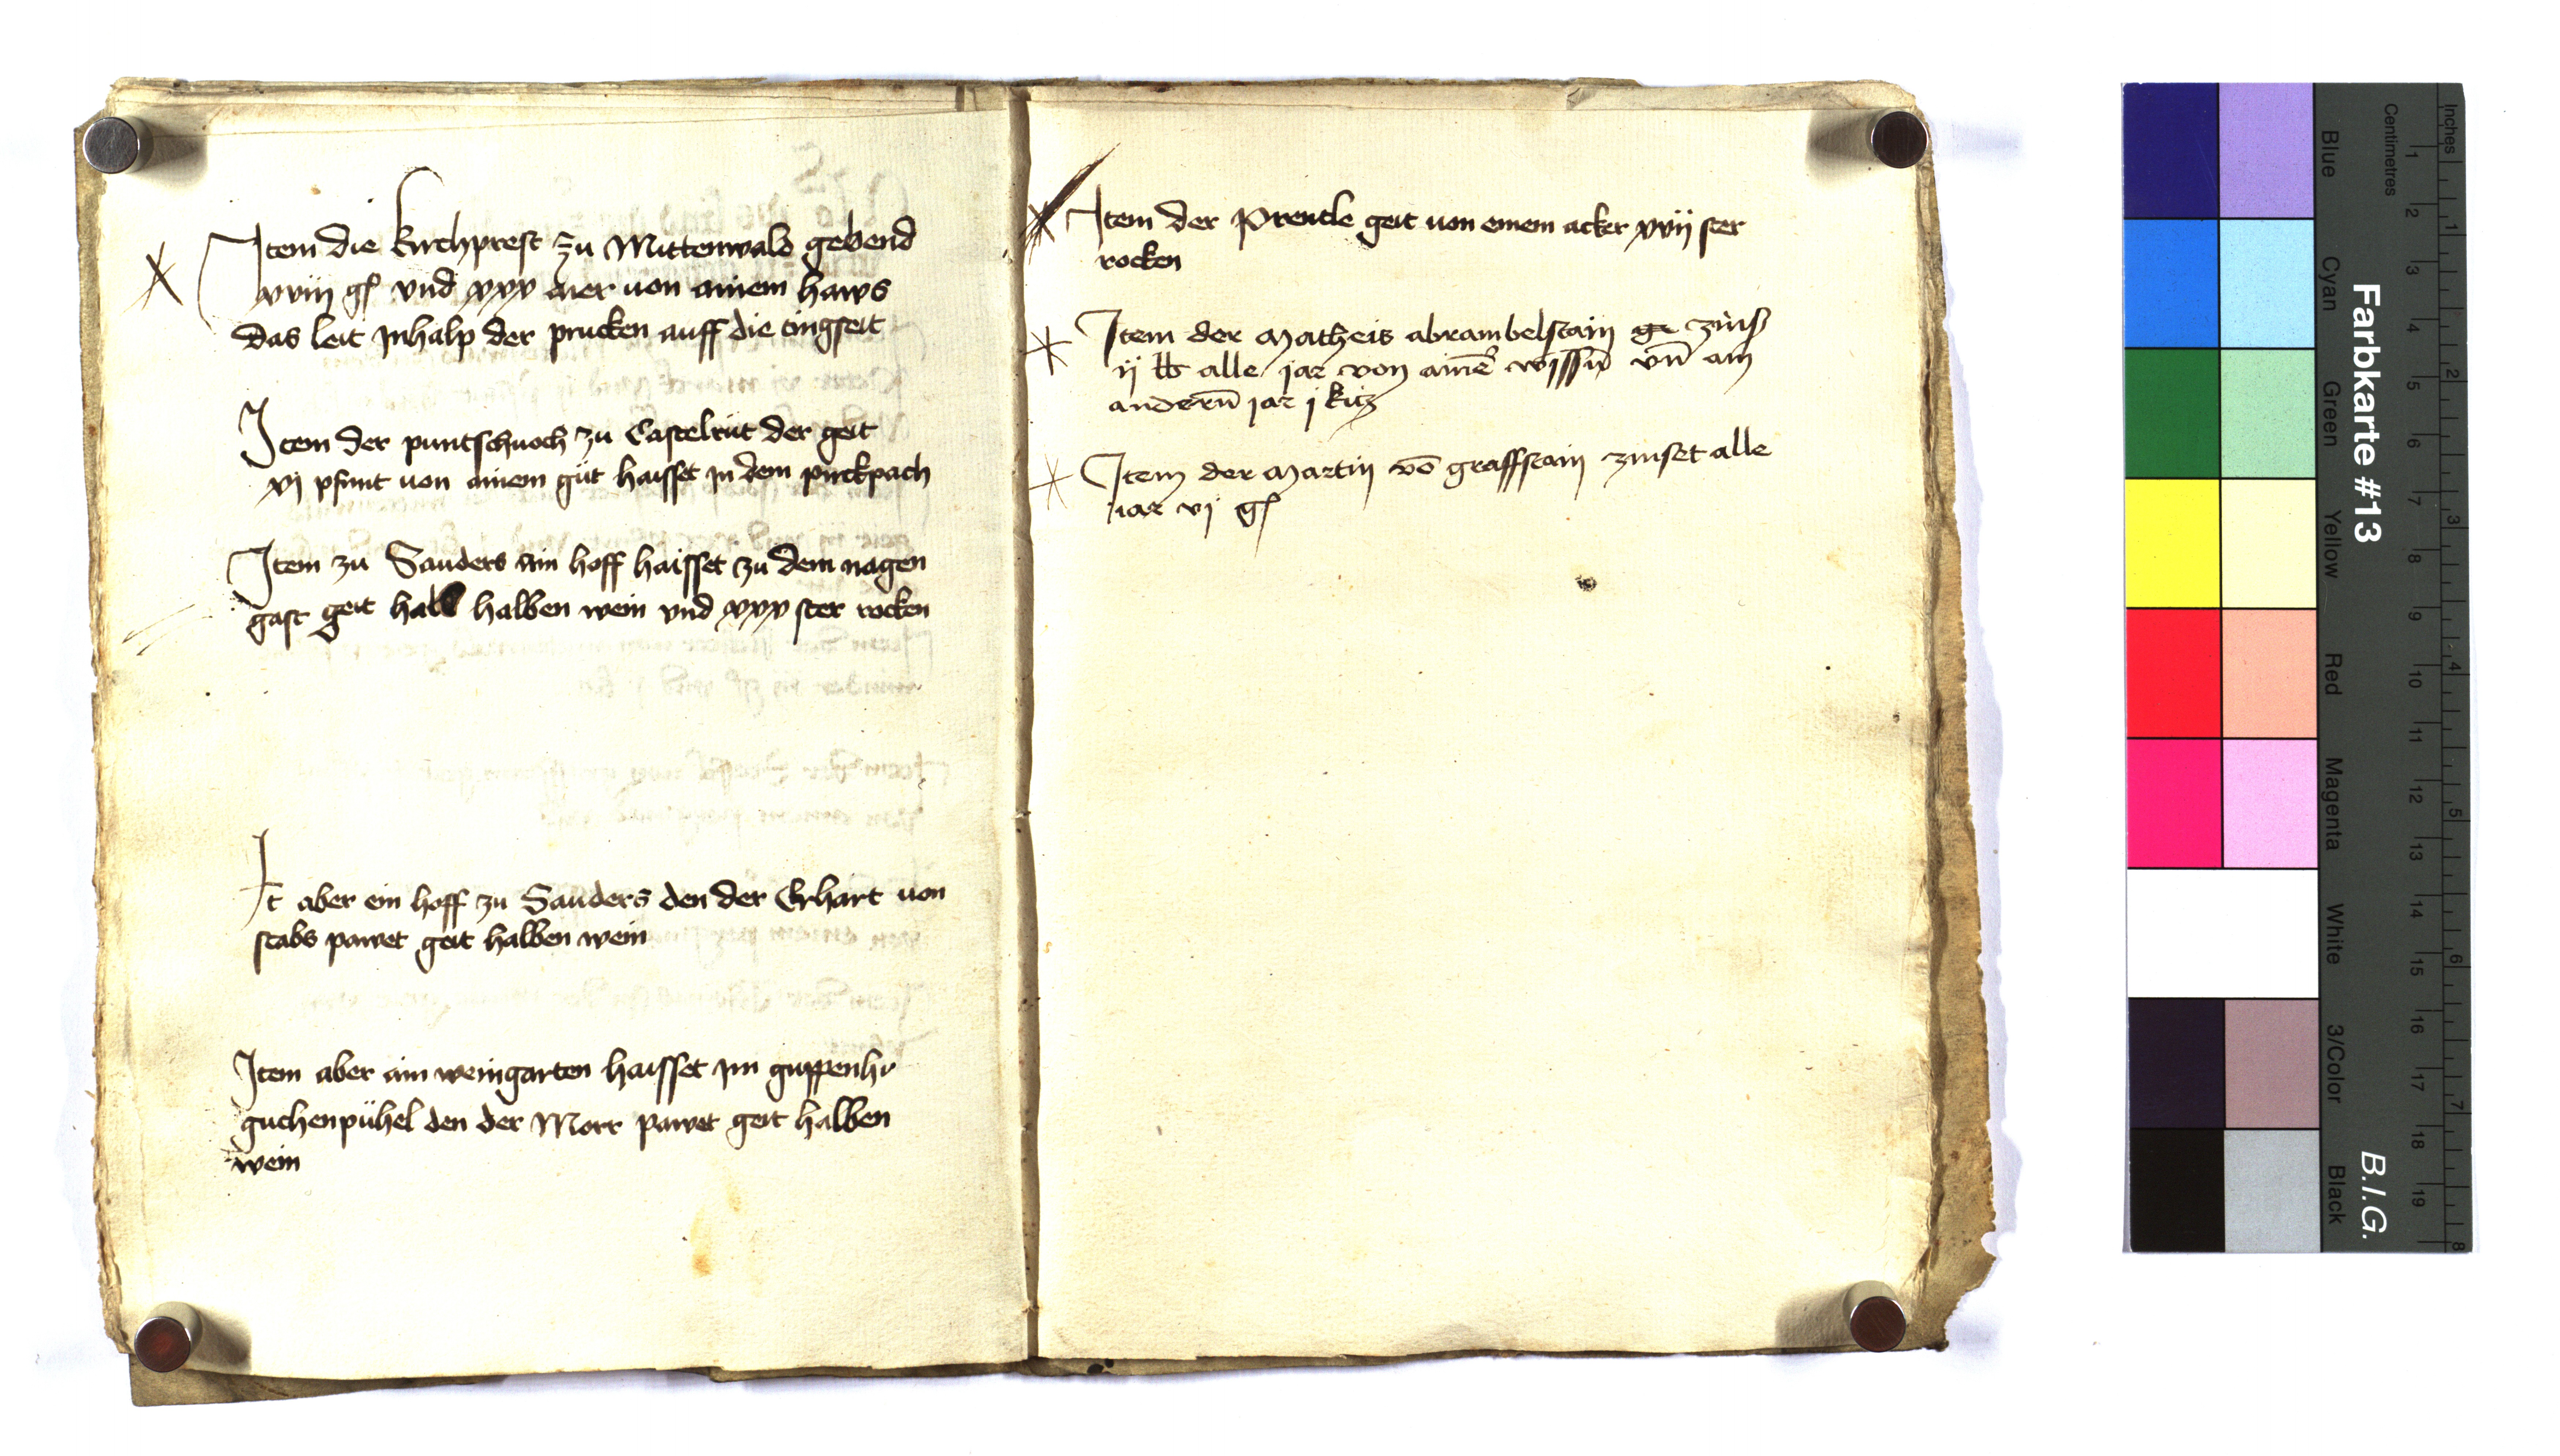 Item die kirchprest zu Mittenwald gebend
xviii gl vnd xxx aier uon ainem haws
das leit Inhalp der prucken auff die tingseit
Item der puntschuoch zu Castelrut der geit
xj pfunt uon ainem güt haisset in dem pirckpach
Item zu Sauders ain hoff haisset zu dem nagen
gast geit halb halben wein vnd xxx ster rocken
It aber ein hoff zu Sauders den der Erhart uon
stabs pawet geit halben wein
Item aber ain weingarten haisset im guppenhr
guchenpühel den der Morr pawet geit halben
wein
Item der Prentle geit uon einem acker xvij ster
rocken
Item der Matheis abrambelstain ge zinss
ij lb alle jar von ainē wissn̄ vn̄ am
andern̄ jar j kitz
Item der Martin vō graffstain zinset alle
iar vj gl
Farbkarte #13
B.I.G.
Blue
Cyan
Green
Yellow
Red
Magenta
White
3/Color
Black
Centimetres
1 2 3 4 5 6 7 8 9 10 11 12 13 14 15 16 17 18 19
Inches
1 2 3 4 5 6 7 8